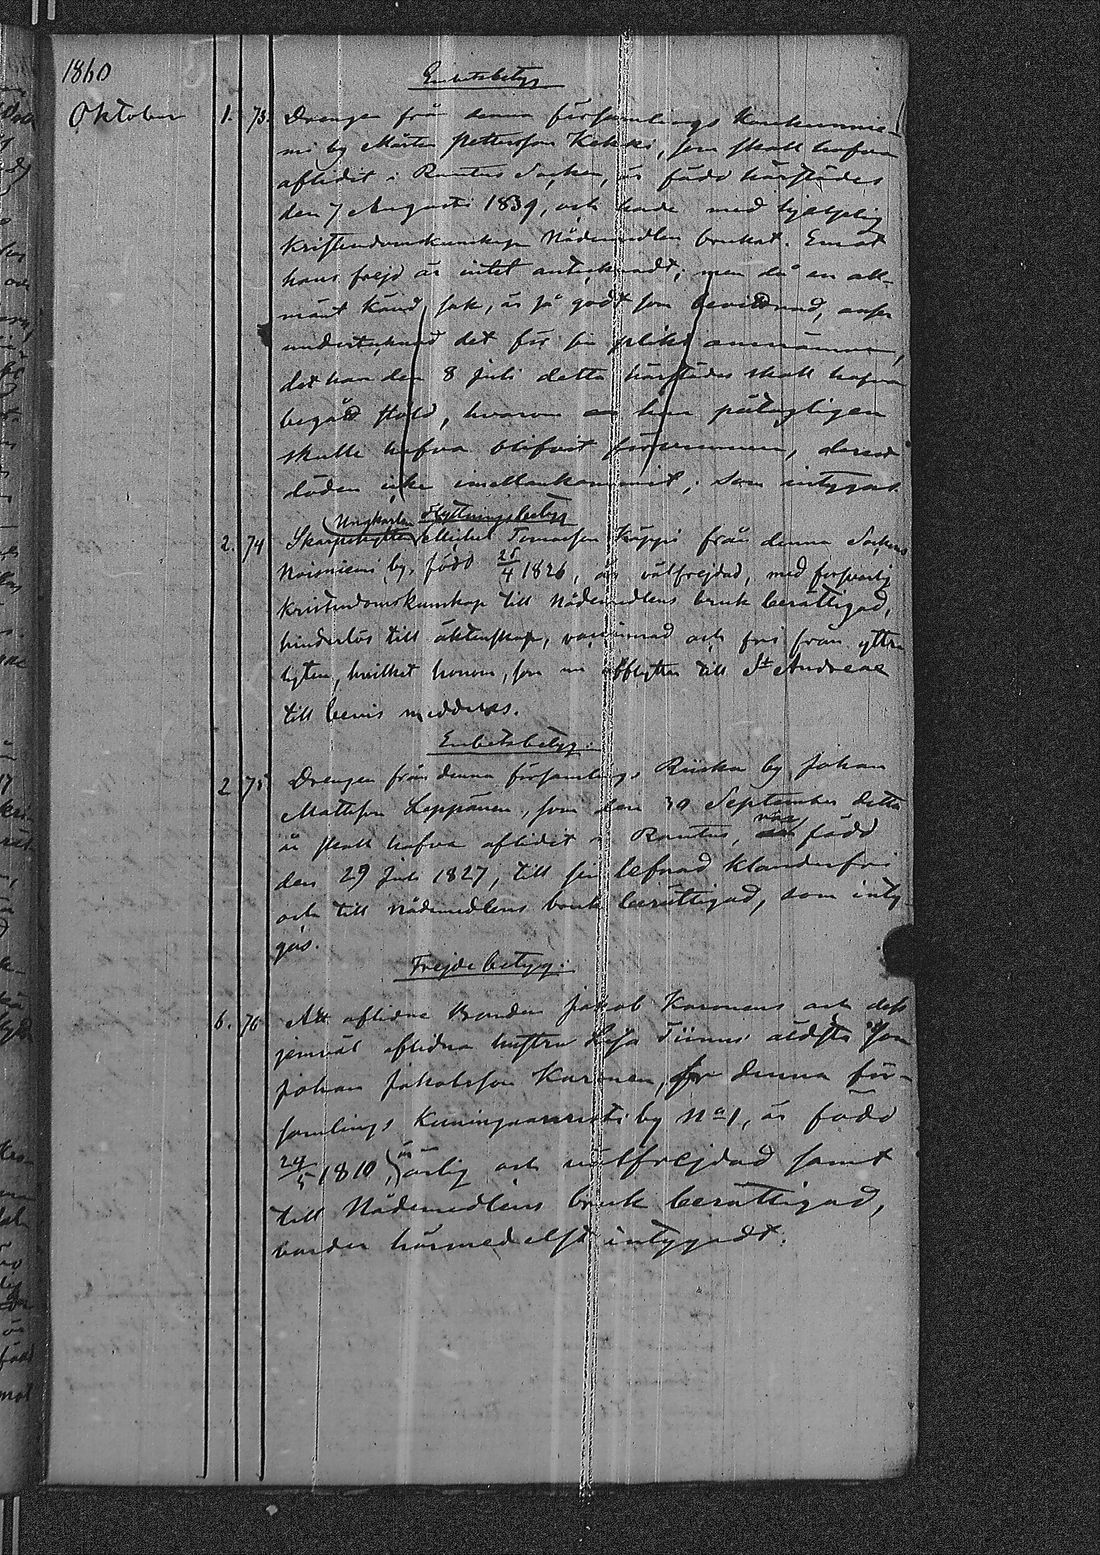 1860
Enbetsbetyg
Oktober 1. 73. Drengen från denna församlings
by Mårten Pettersson Kekki, som skall hafva
aflidit i Rautus Socken, är född härstädes
den 7 Augusti 1839, och hade med hjelplig
Kristendomskunskap Nådemedlen brukat. Emot
hans frejd är intet antecknadt; men då en all-
mänt känd sak, är så godt som bevittnad, anser
undertecknad det för sin plikt
det han den 8 Juli detta härstädes skall hafva
begått stöld, hvarom han påtagligen
skulle hafva blifvit , derest
döden icke emellankommit; som intygas
Flyttningsbetyg
Ungkarlen
2. 74 Michel Tomasson Käppi från denna Sockens
by, född 25/4 1826, är välfrejdad, med försvarlig
kristendomskunskap till Nådemedlens bruk berättigad,
hinderlös till äktenskap, vaccinerad och fri från yttre
lyten, hvilket honom, som en afflyttar till St Andreae
till bevis meddelas.
Enbetsbetyg.
2 75 Drengen från denna församlings Riiska by Johan
Mattsson Leppänen, som den 30 September detta
år skall hafva aflidit i Rautus, var född
den 29 Juli 1827, till sin lefnad klanderfri
och till Nådemedlens bruk berättigad, som inty-
gas.
Frejdebetyg.
6. 76 Att aflidne Bonden Jakob Karonens och dess
jemväl aflidna hustru Lisa Tiinus äldsta Son
Johan Jakobsson Karonen, fr denna för-
samlings by No 1, är född
24/5 1810, är ärlig och välfrejdad samt
till Nådemedlens bruk berättigad,
varder härmedelst intygadt.